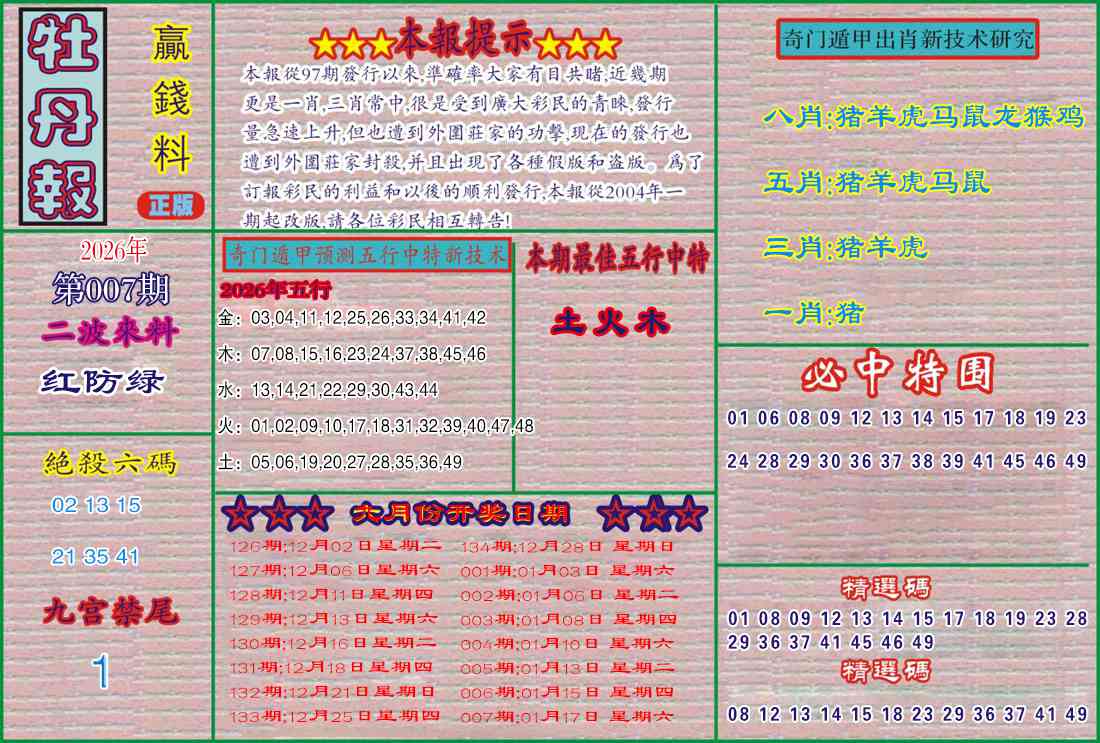 牡丹報
贏錢料
正版
★★★本報提示★★★
本報從97期發行以來,準確率大家有目共睹,近幾期
更是一肖,三肖常中,很是受到廣大彩民的青睞,發行
量急速上升,但也遭到外圍莊家的功擊,現在的發行也
遭到外圍莊家封殺,并且出現了各種假版和盗版。爲了
訂報彩民的利益和以後的順利發行,本報從2004年一
期起改版,請各位彩民相互轉告!
2026年
第007期
二波來料
红防绿
絕殺六碼
02 13 15
21 35 41
九宫禁尾
1
奇门遁甲预测五行中特新技术
2026年五行
金：03,04,11,12,25,26,33,34,41,42
木：07,08,15,16,23,24,37,38,45,46
水：13,14,21,22,29,30,43,44
火：01,02,09,10,17,18,31,32,39,40,47,48
土：05,06,19,20,27,28,35,36,49
本期最佳五行中特
土火木
☆☆☆ 六月份开奖日期 ☆☆☆
126期:12月02日星期二 134期:12月28日 星期日
127期:12月06日星期六 001期:01月03日 星期六
128期:12月11日星期四 002期:01月06日 星期二
129期:12月13日星期六 003期:01月08日 星期四
130期:12月16日星期二 004期:01月10日 星期六
131期:12月18日星期四 005期:01月13日 星期二
132期:12月21日星期日 006期:01月15日 星期四
133期:12月25日星期四 007期:01月17日 星期六
奇门遁甲出肖新技术研究
八肖:猪羊虎马鼠龙猴鸡
五肖:猪羊虎马鼠
三肖:猪羊虎
一肖:猪
必中特围
01 06 08 09 12 13 14 15 17 18 19 23
24 28 29 30 36 37 38 39 41 45 46 49
精選碼
01 08 09 12 13 14 15 17 18 19 23 28
29 36 37 41 45 46 49
精選碼
08 12 13 14 15 18 23 29 36 37 41 49